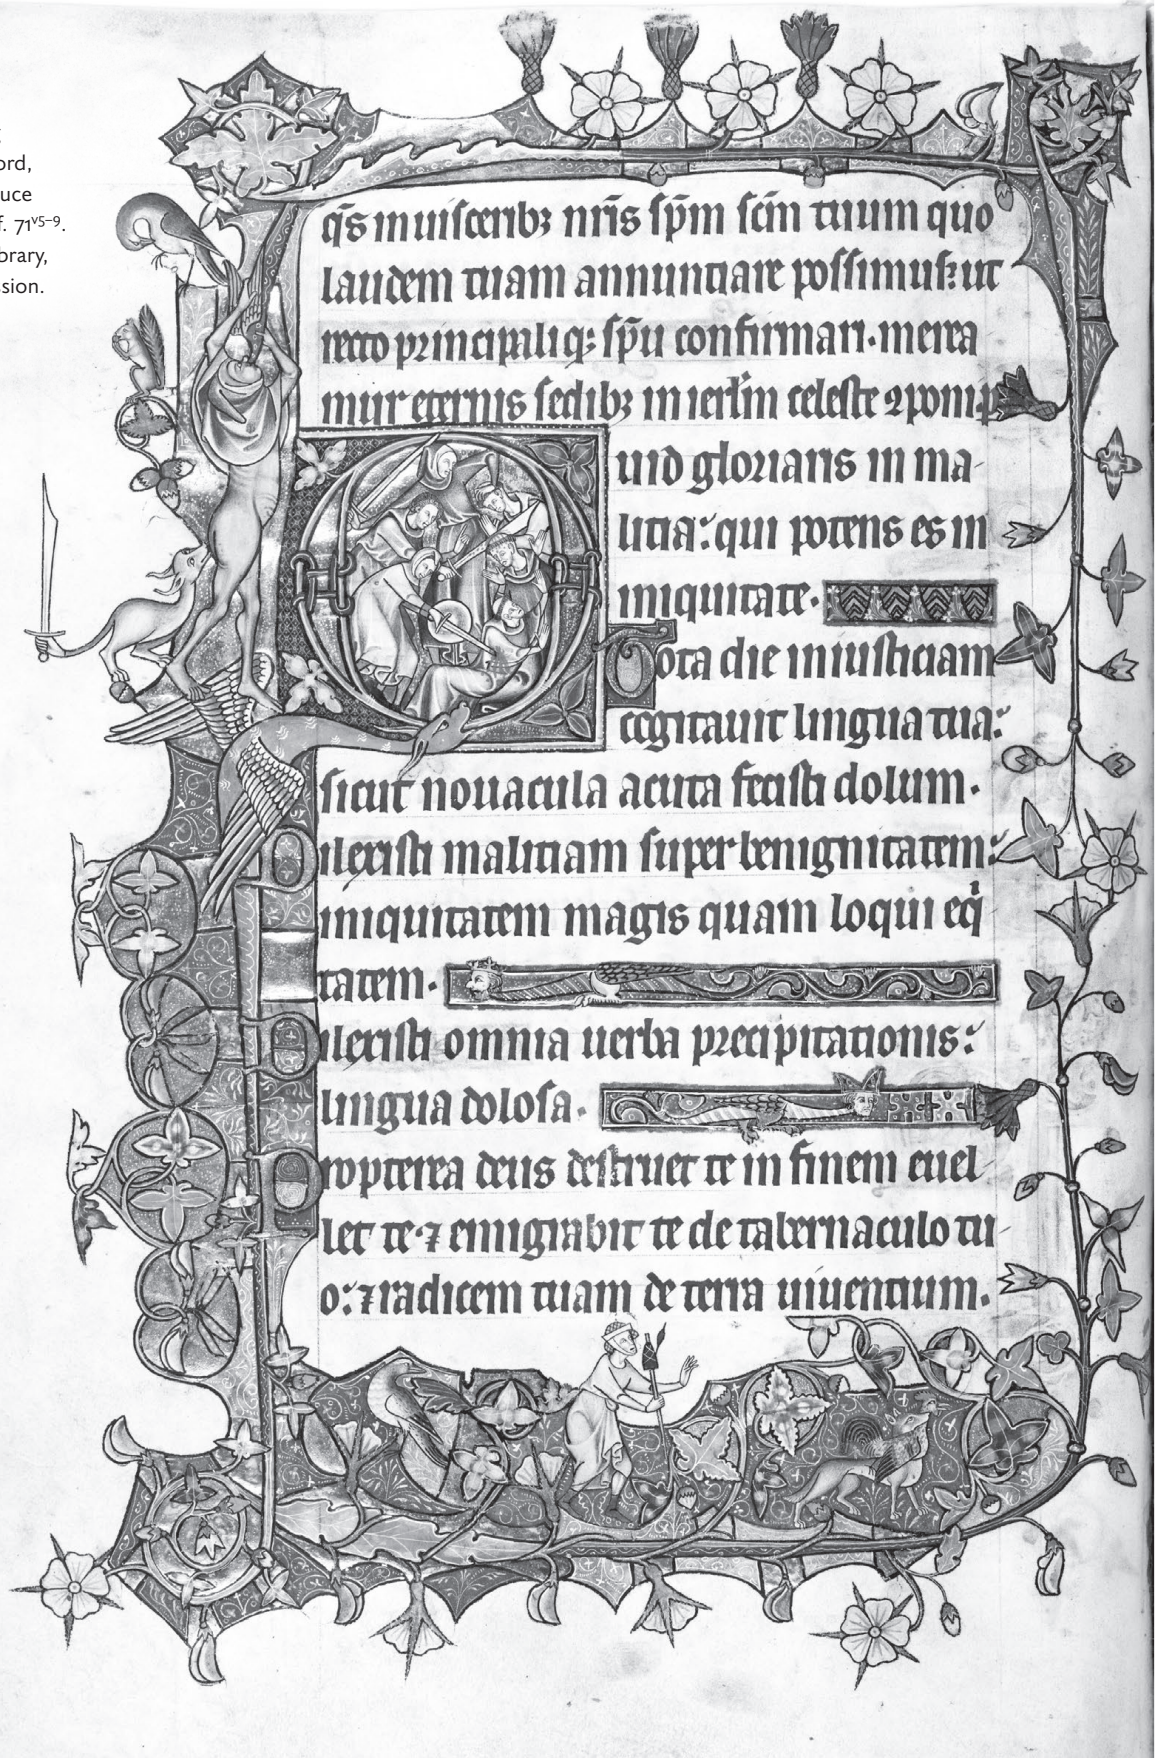 ord,
uce
f. 71v5–9.
brary,
sion.
q̄s in uisceribꝫ nr̄is sp̄m sc̄m tuum quo
laudem tuam annunciare possimus: ut
recto principaliqꝫ sp̄u confirmari. merea
mur eternis sedibꝫ in ierl̄m celeste ꝯponi
Quid gloriaris in ma-
litia: qui potens es in
iniquitate.
Tota die iniusticiam
cogitauit lingua tua:
sicut nouacula acuta fecisti dolum.
Dilexisti malitiam super benignitatem:
iniquitatem magis quam loqui eqͥ
tatem.
Dilexisti omnia uerba precipitationis:
lingua dolosa.
Propterea deus destruet te in finem euel-
let te. ⁊ emigrabit te de tabernaculo tu-
o: ⁊ radicem tuam de terra uiuentium.